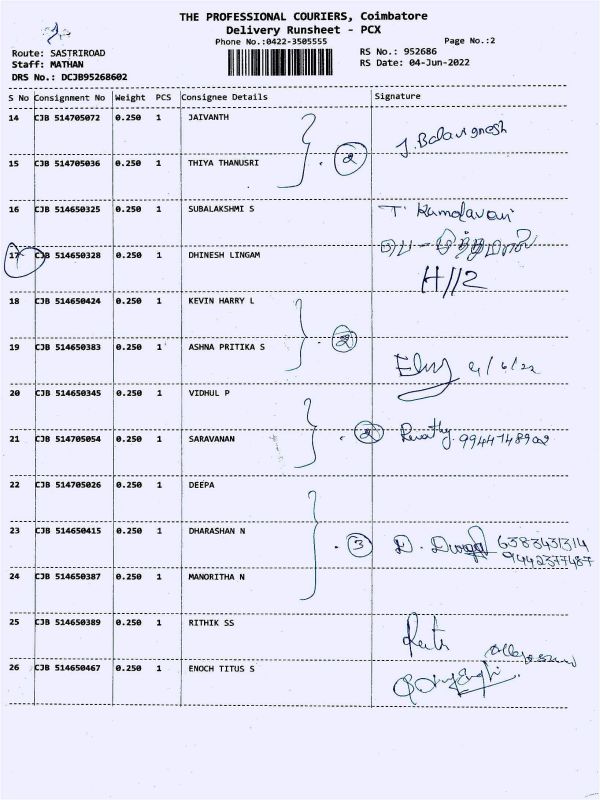 THE PROFESSIONAL COURIERS, Coimbatore
Delivery Runsheet - PCX
Phone No.:0422-3505555 Page No.:2
Route: SASTRIROAD RS No.: 952686
Staff: MATHAN RS Date: 04-Jun-2022
DRS No.: DCJB95268602
S No Consignment No Weight PCS Consignee Details Signature
14 CJB 514705072 0.250 1 JAIVANTH
J. Balavignesh
2
15 CJB 514705036 0.250 1 THIYA THANUSRI
16 CJB 514650325 0.250 1 SUBALAKSHMI S T. Kamalaveni
17 CJB 514650328 0.250 1 DHINESH LINGAM
H//2
18 CJB 514650424 0.250 1 KEVIN HARRY L
2
19 CJB 514650383 0.250 1 ASHNA PRITIKA S
4/6/22
20 CJB 514650345 0.250 1 VIDHUL P
2 Revathy. 9944748902
21 CJB 514705054 0.250 1 SARAVANAN
22 CJB 514705026 0.250 1 DEEPA
23 CJB 514650415 0.250 1 DHARASHAN N
3 D. 6383431314
9442377487
24 CJB 514650387 0.250 1 MANORITHA N
25 CJB 514650389 0.250 1 RITHIK SS
26 CJB 514650467 0.250 1 ENOCH TITUS S